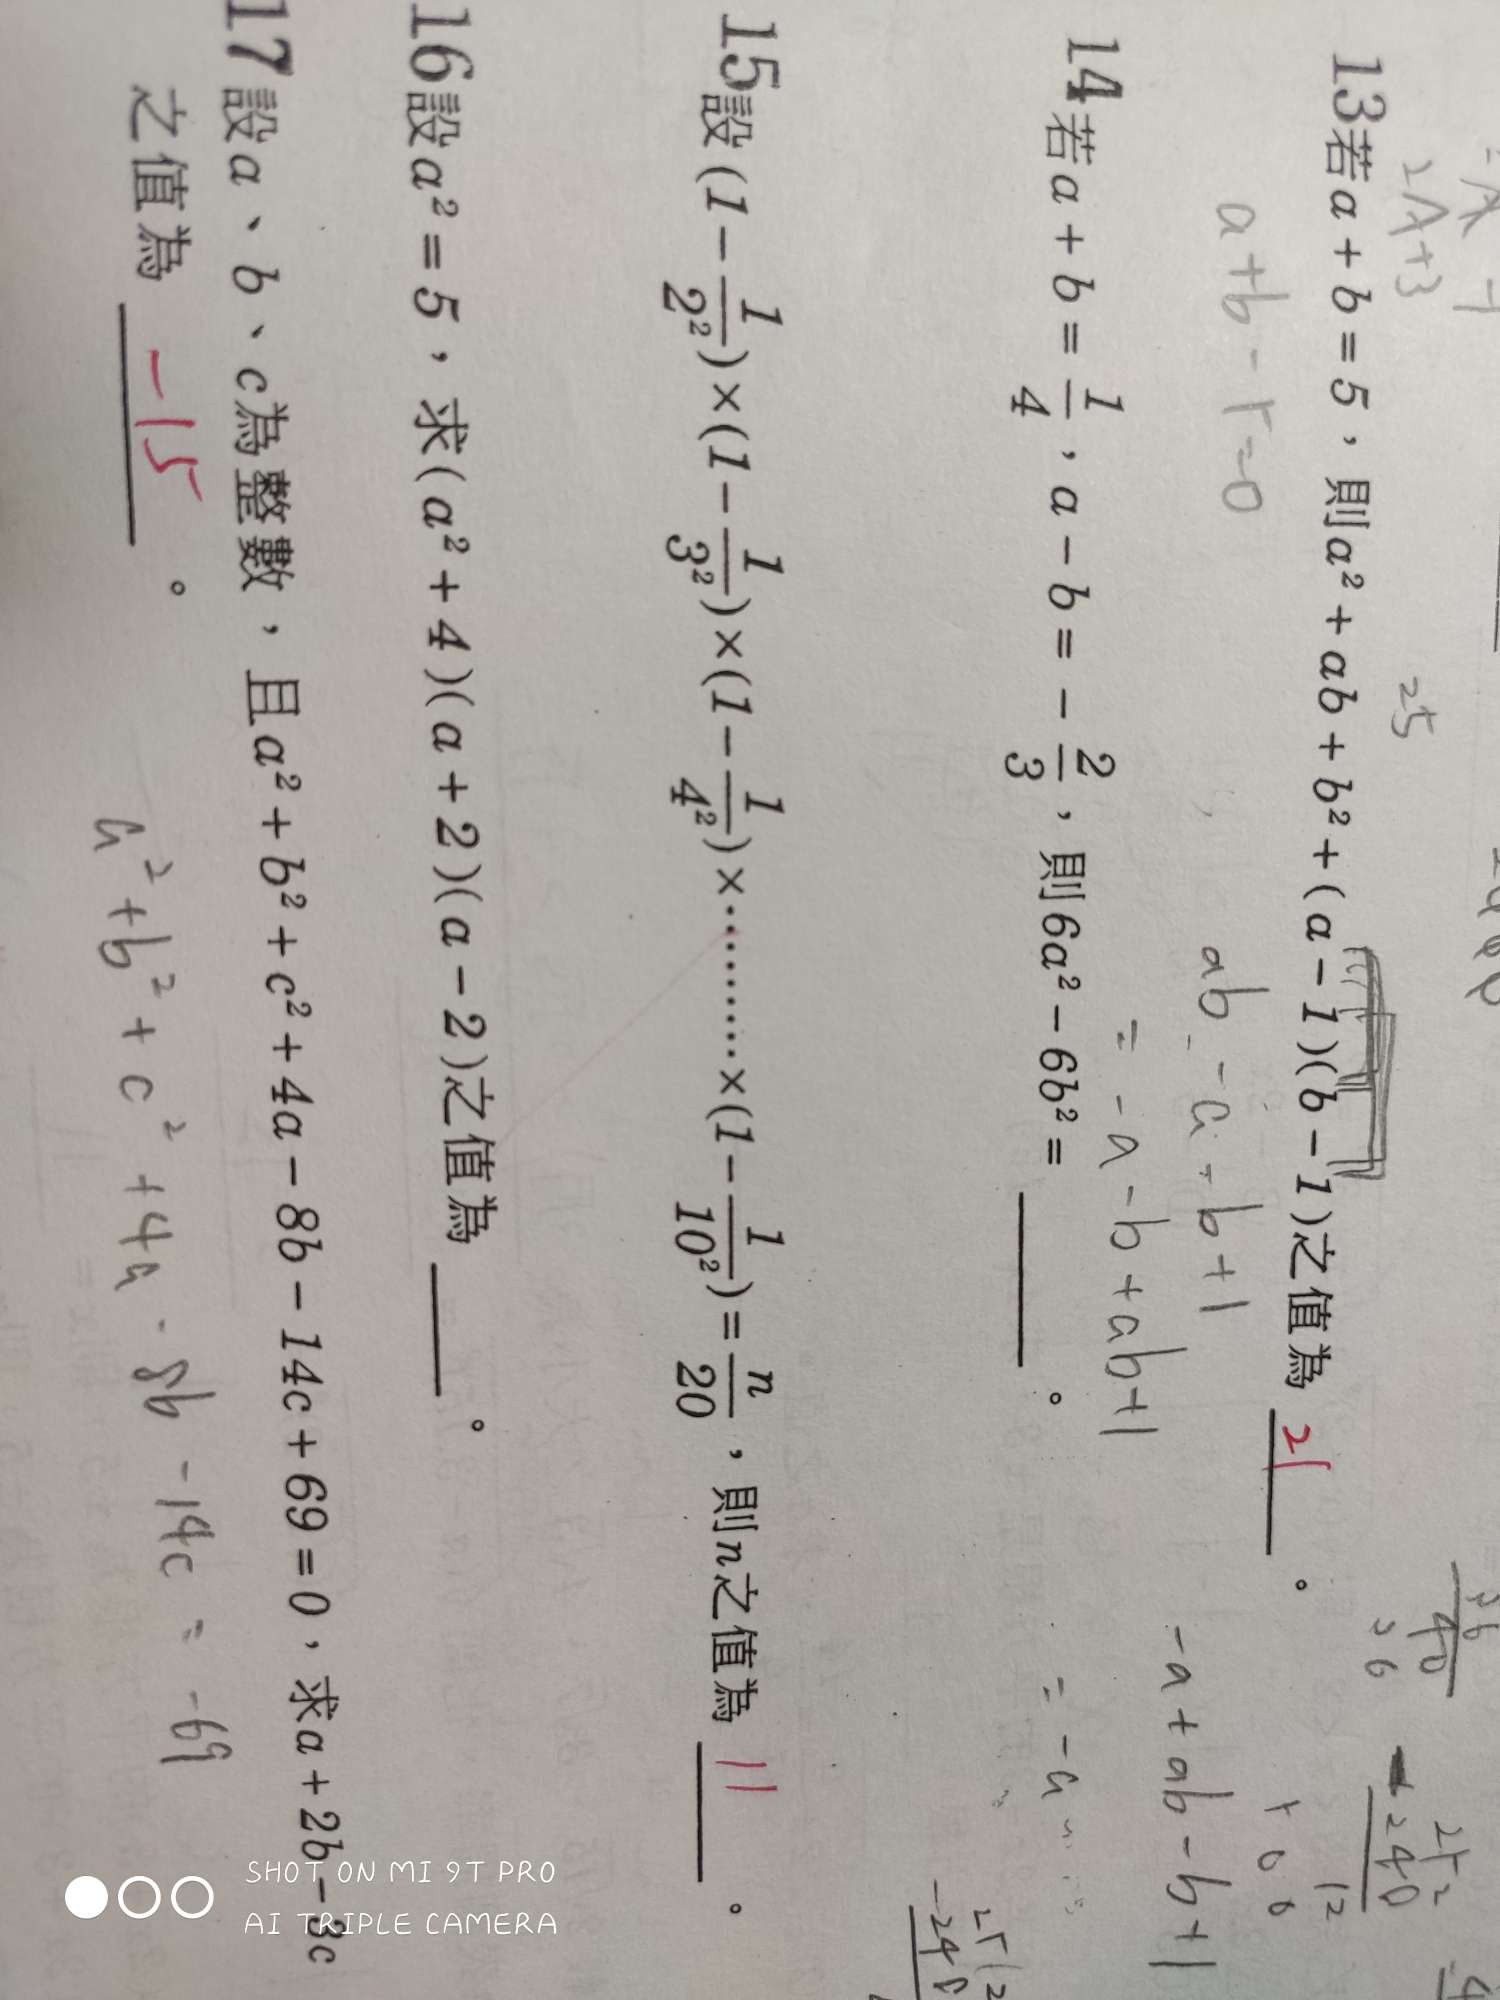 13若a+b=5，則a²+ab+b²+(a-1)(b-1)之值為 21 。
2A+3
25
a+b-5=0
ab-a-b+1
=-a-b+ab+1
-a+ab-b+1
14若a+b=1/4，a-b=-2/3，則6a²-6b²= ____ 。
15設(1-1/2²)×(1-1/3²)×(1-1/4²)×………×(1-1/10²)=n/20，則n之值為 11 。
16設a²=5，求(a²+4)(a+2)(a-2)之值為 ____ 。
17設a、b、c為整數，且a²+b²+c²+4a-8b-14c+69=0，求a+2b-3c
之值為 -15 。
a²+b²+c²+4a-8b-14c=-69
SHOT ON MI 9T PRO
AI TRIPLE CAMERA